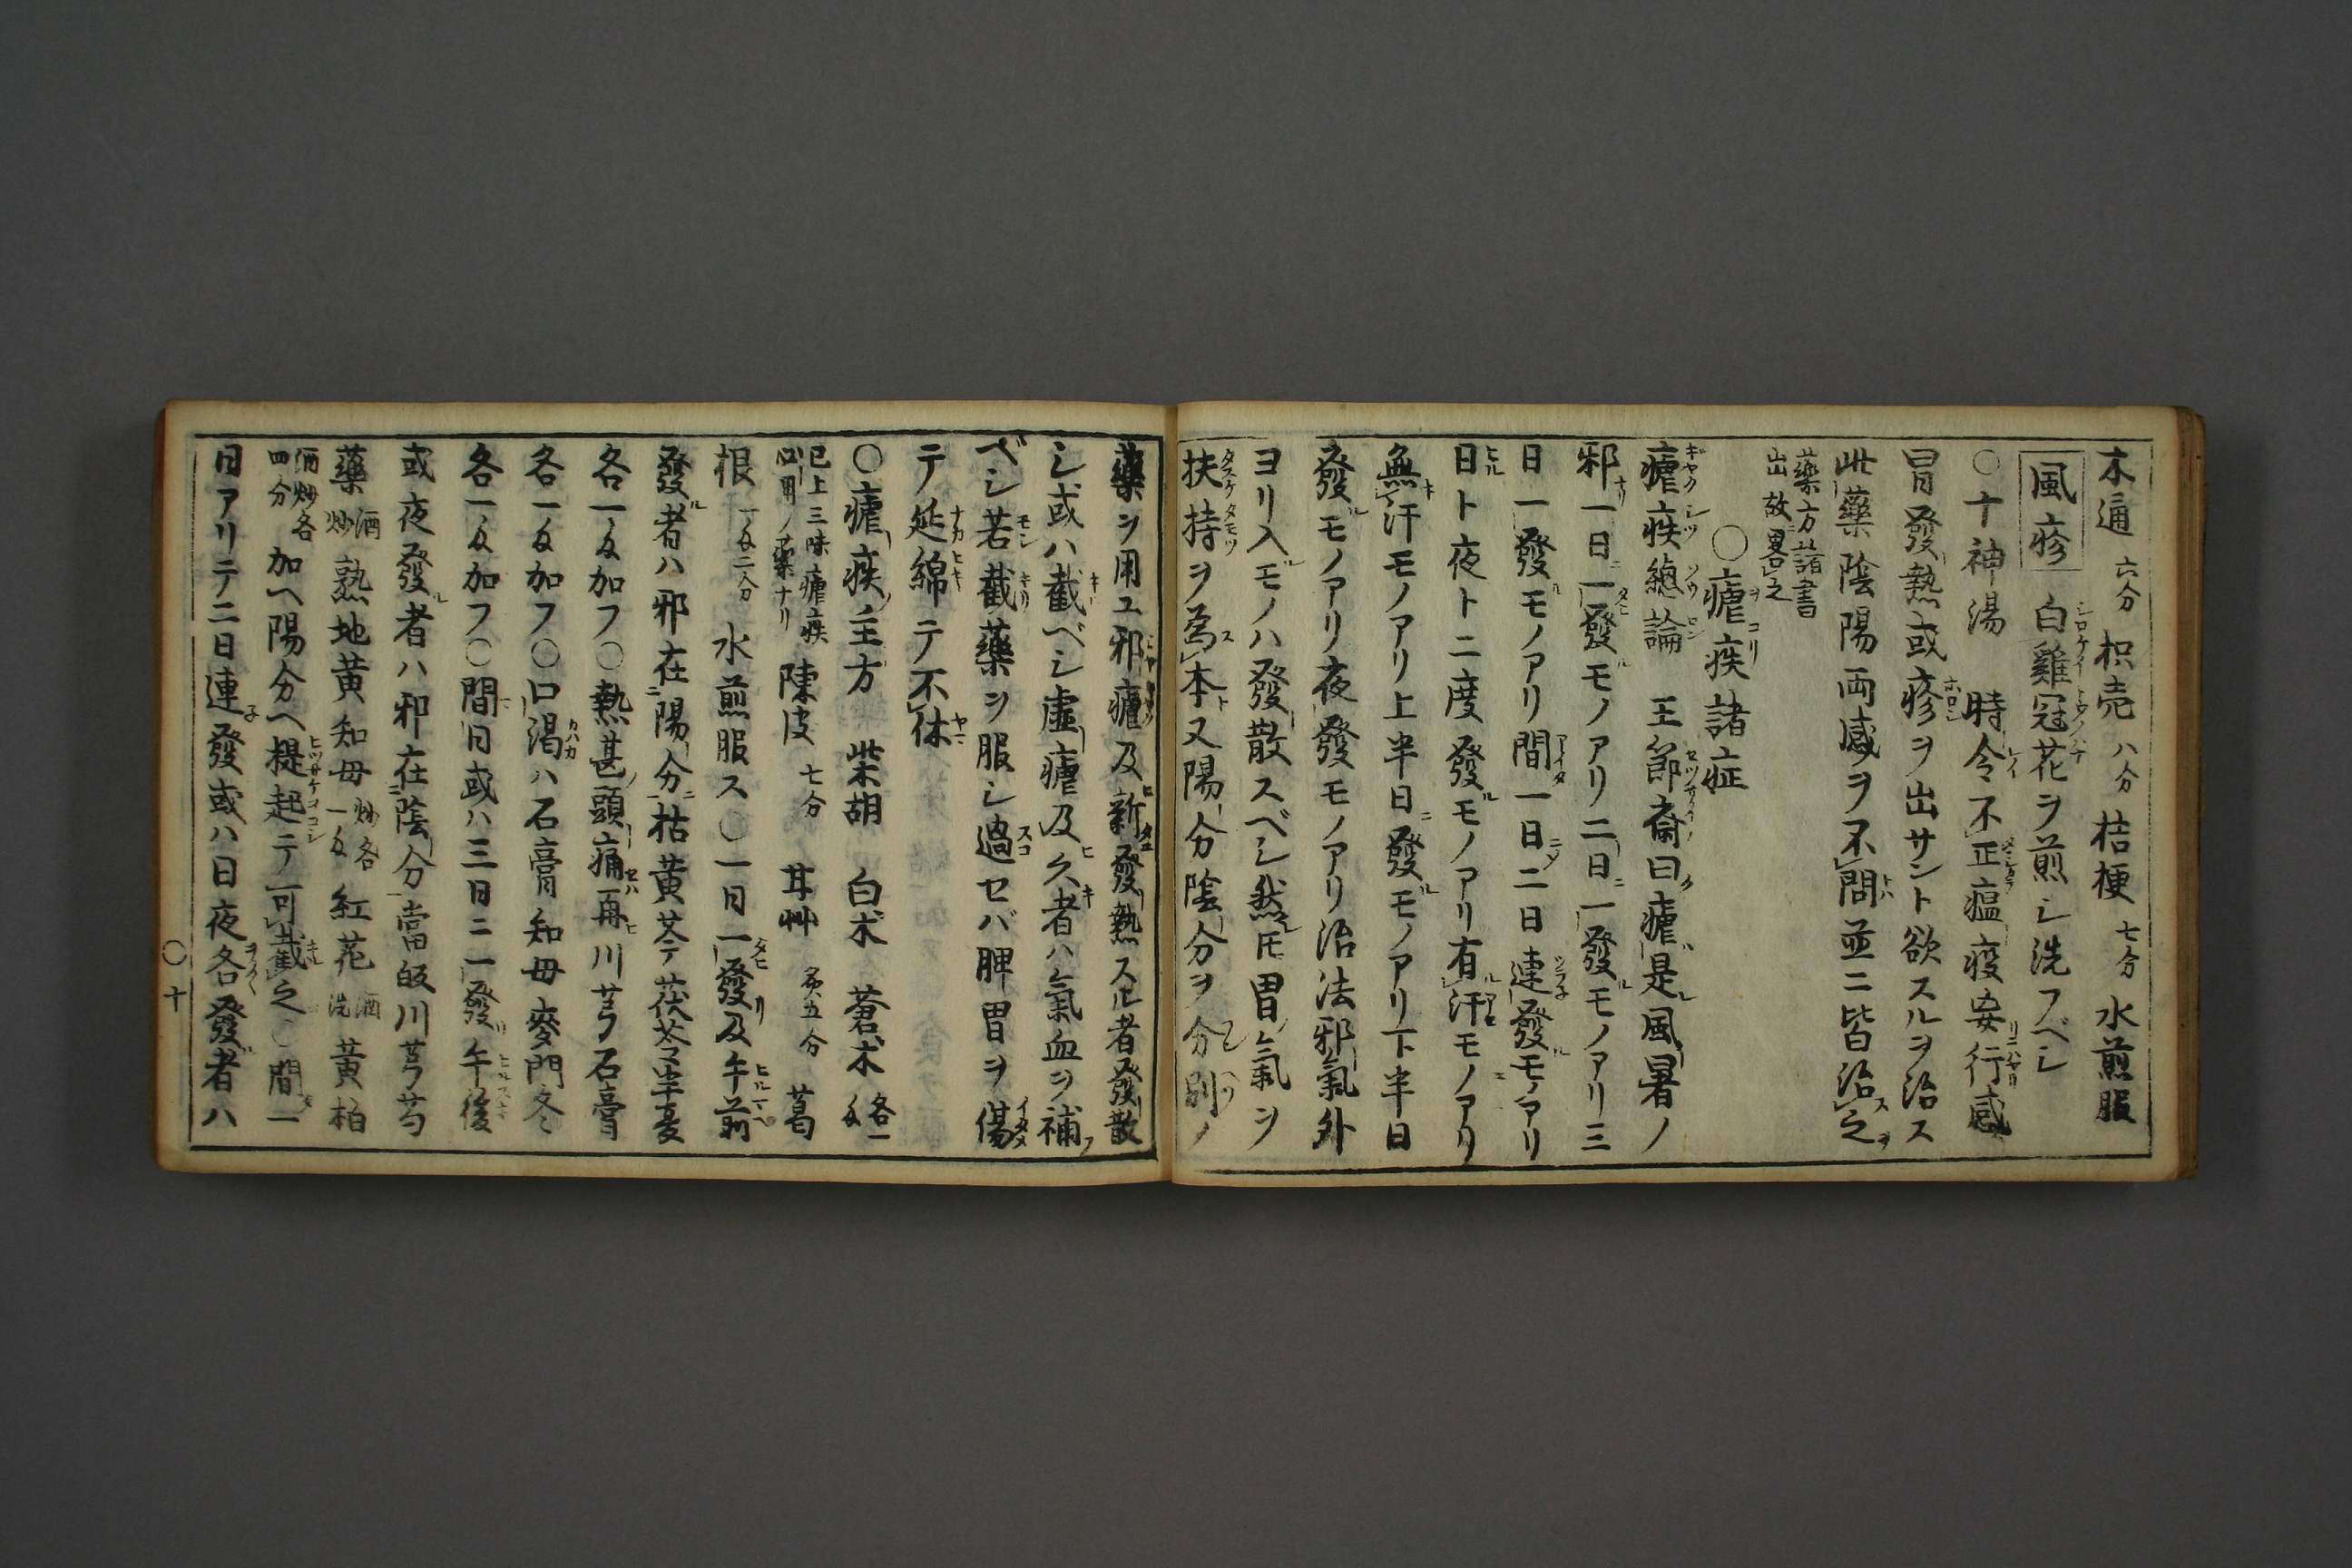 木通 六分 枳売 八分 桔梗 七分 水煎服
風疹 白雞冠花ヲ煎シ洗フベシ
○十神湯 時令不正瘟疫妄行感
冐發熱或疹ヲ出サント欲スルヲ治ス
此藥陰陽両感ヲ不問並ニ皆治之
藥方諸書
出故畧之
○瘧疾諸症
瘧疾總論 王節齋曰瘧是風暑ノ
邪一日一發モノアリ二日一發モノアリ三
日一發モノアリ間一日二日連發モノアリ
日ト夜ト二度發モノアリ有汗モノアリ
無汗モノアリ上半日發モノアリ下半日
發モノアリ夜發モノアリ治法邪氣外
ヨリ入モノハ發散スベシ然𪜈胃氣ヲ
扶持ヲ為本又陽分陰分ヲ分別ノ
藥ヲ用ユ邪瘧及新發熱スル者發散
シ或ハ截ベシ虚瘧及久者ハ氣血ヲ補
ベシ若截藥ヲ服シ過セバ脾胃ヲ傷
テ延綿テ不休
○瘧疾主方 柴胡 白朮 蒼朮 各一
已上三味瘧疾
必用ノ藥ナリ 陳皮 七分 甘艸 炙五分 葛
根 水煎服ス○一日一發及午前
發者ハ邪在陽分枯黄芩茯苓半夏
各一匁加フ○熱甚頭痛再川芎石膏
各一匁加フ○口渇ハ石膏知毋麥門冬
各一匁加フ○間日或ハ三日ニ一發午後
或夜發者ハ邪在陰分當皈川芎芍
藥 酒炒 熟地黄知毋 炒各一匁 紅花 酒洗 黄柏
酒炒各四分 加ヘ陽分ヘ提起テ可截之○間一
日アリテ二日連發或ハ日夜各發者ハ
○十